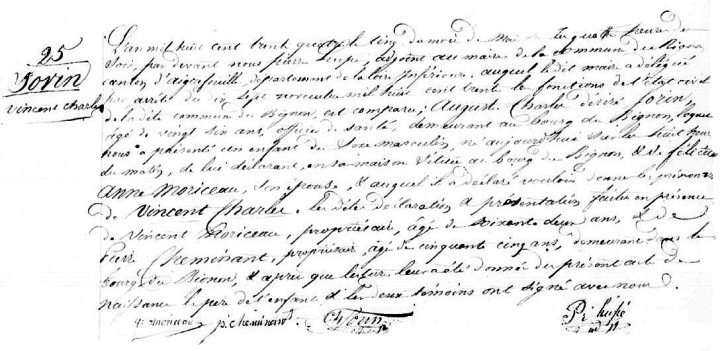 25
Jovin
Vincent Charles
L'an mil huit cent trente quatre le cinq du mois de Mai à quatre heures du
Soir, par devant nous pierre adjoint au maire de la commune du Bignon,
canton d'aigrefeuille, département de la Loire inférieure, auquel le dit maire a délégué
par arrêté du dix Sept novembre mil huit cent trente les fonctions de l'état civil
de la dite commune du Bignon, est comparu, Auguste Charles désiré Jovin,
agé de vingt six ans, officier de santé, demeurant au bourg du Bignon, lequel
nous a présenté un enfant du Sexe masculin, né aujourd'hui sur les huit heures
du matin, de lui déclarant, en sa maison située au bourg du Bignon, & de félicité
anne Moriceau, Son épouse, & auquel il a déclaré vouloir donner les prénoms
De Vincent Charles. les dites déclaration & présentation faites en présence
de Vincent Moriceau, propriétaire, agé de Soixante deux ans, & de
Pierre Cheminant, propriétaire, agé de cinquante cinq ans, demeurant tous le
bourg du Bignon, & après que lecture leur a été donnée du présent acte de
naissance le père de l'enfant & les deux témoins ont signé avec nous.
V. moriceau p. cheminant Ch Jovin